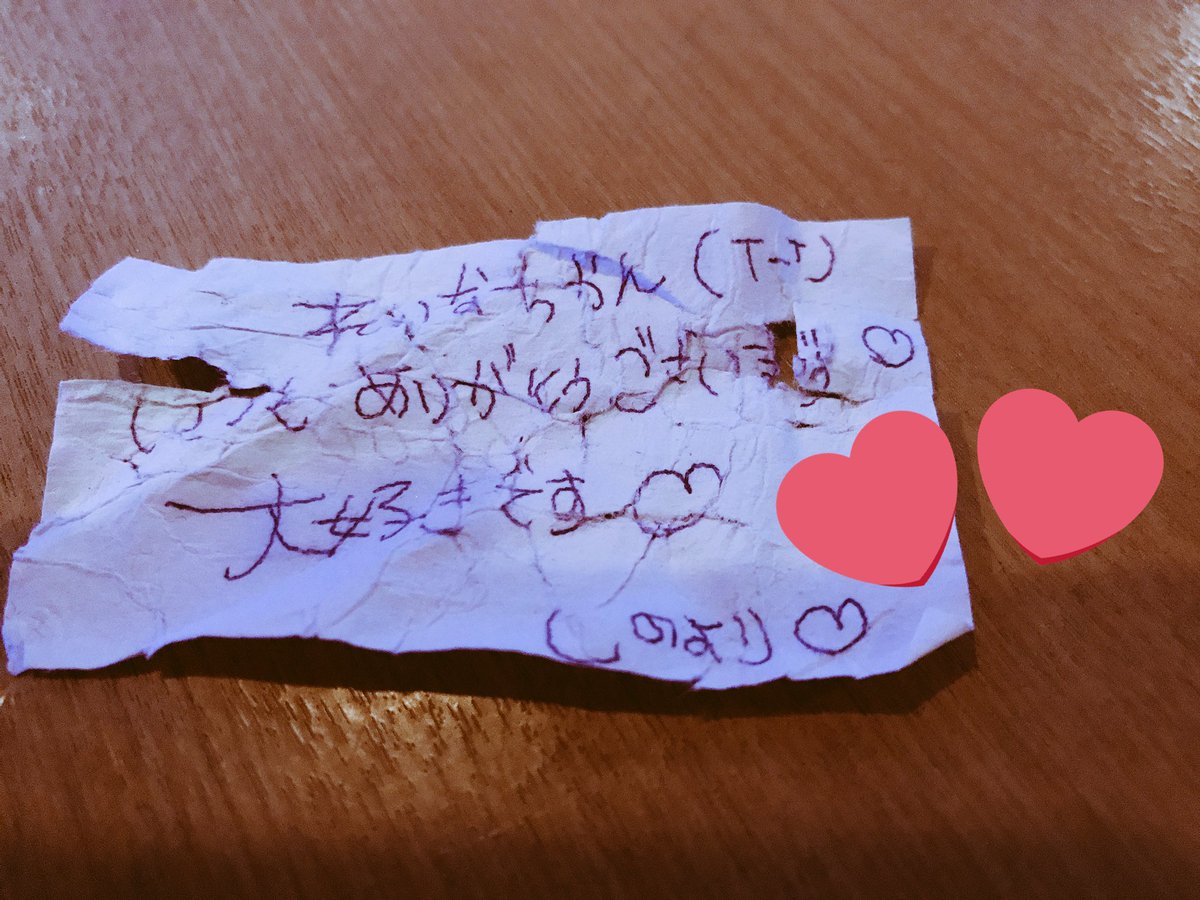 れいなちゃん (T-T)
いつもありがとうございます♡
大好きです♡
しのより♡